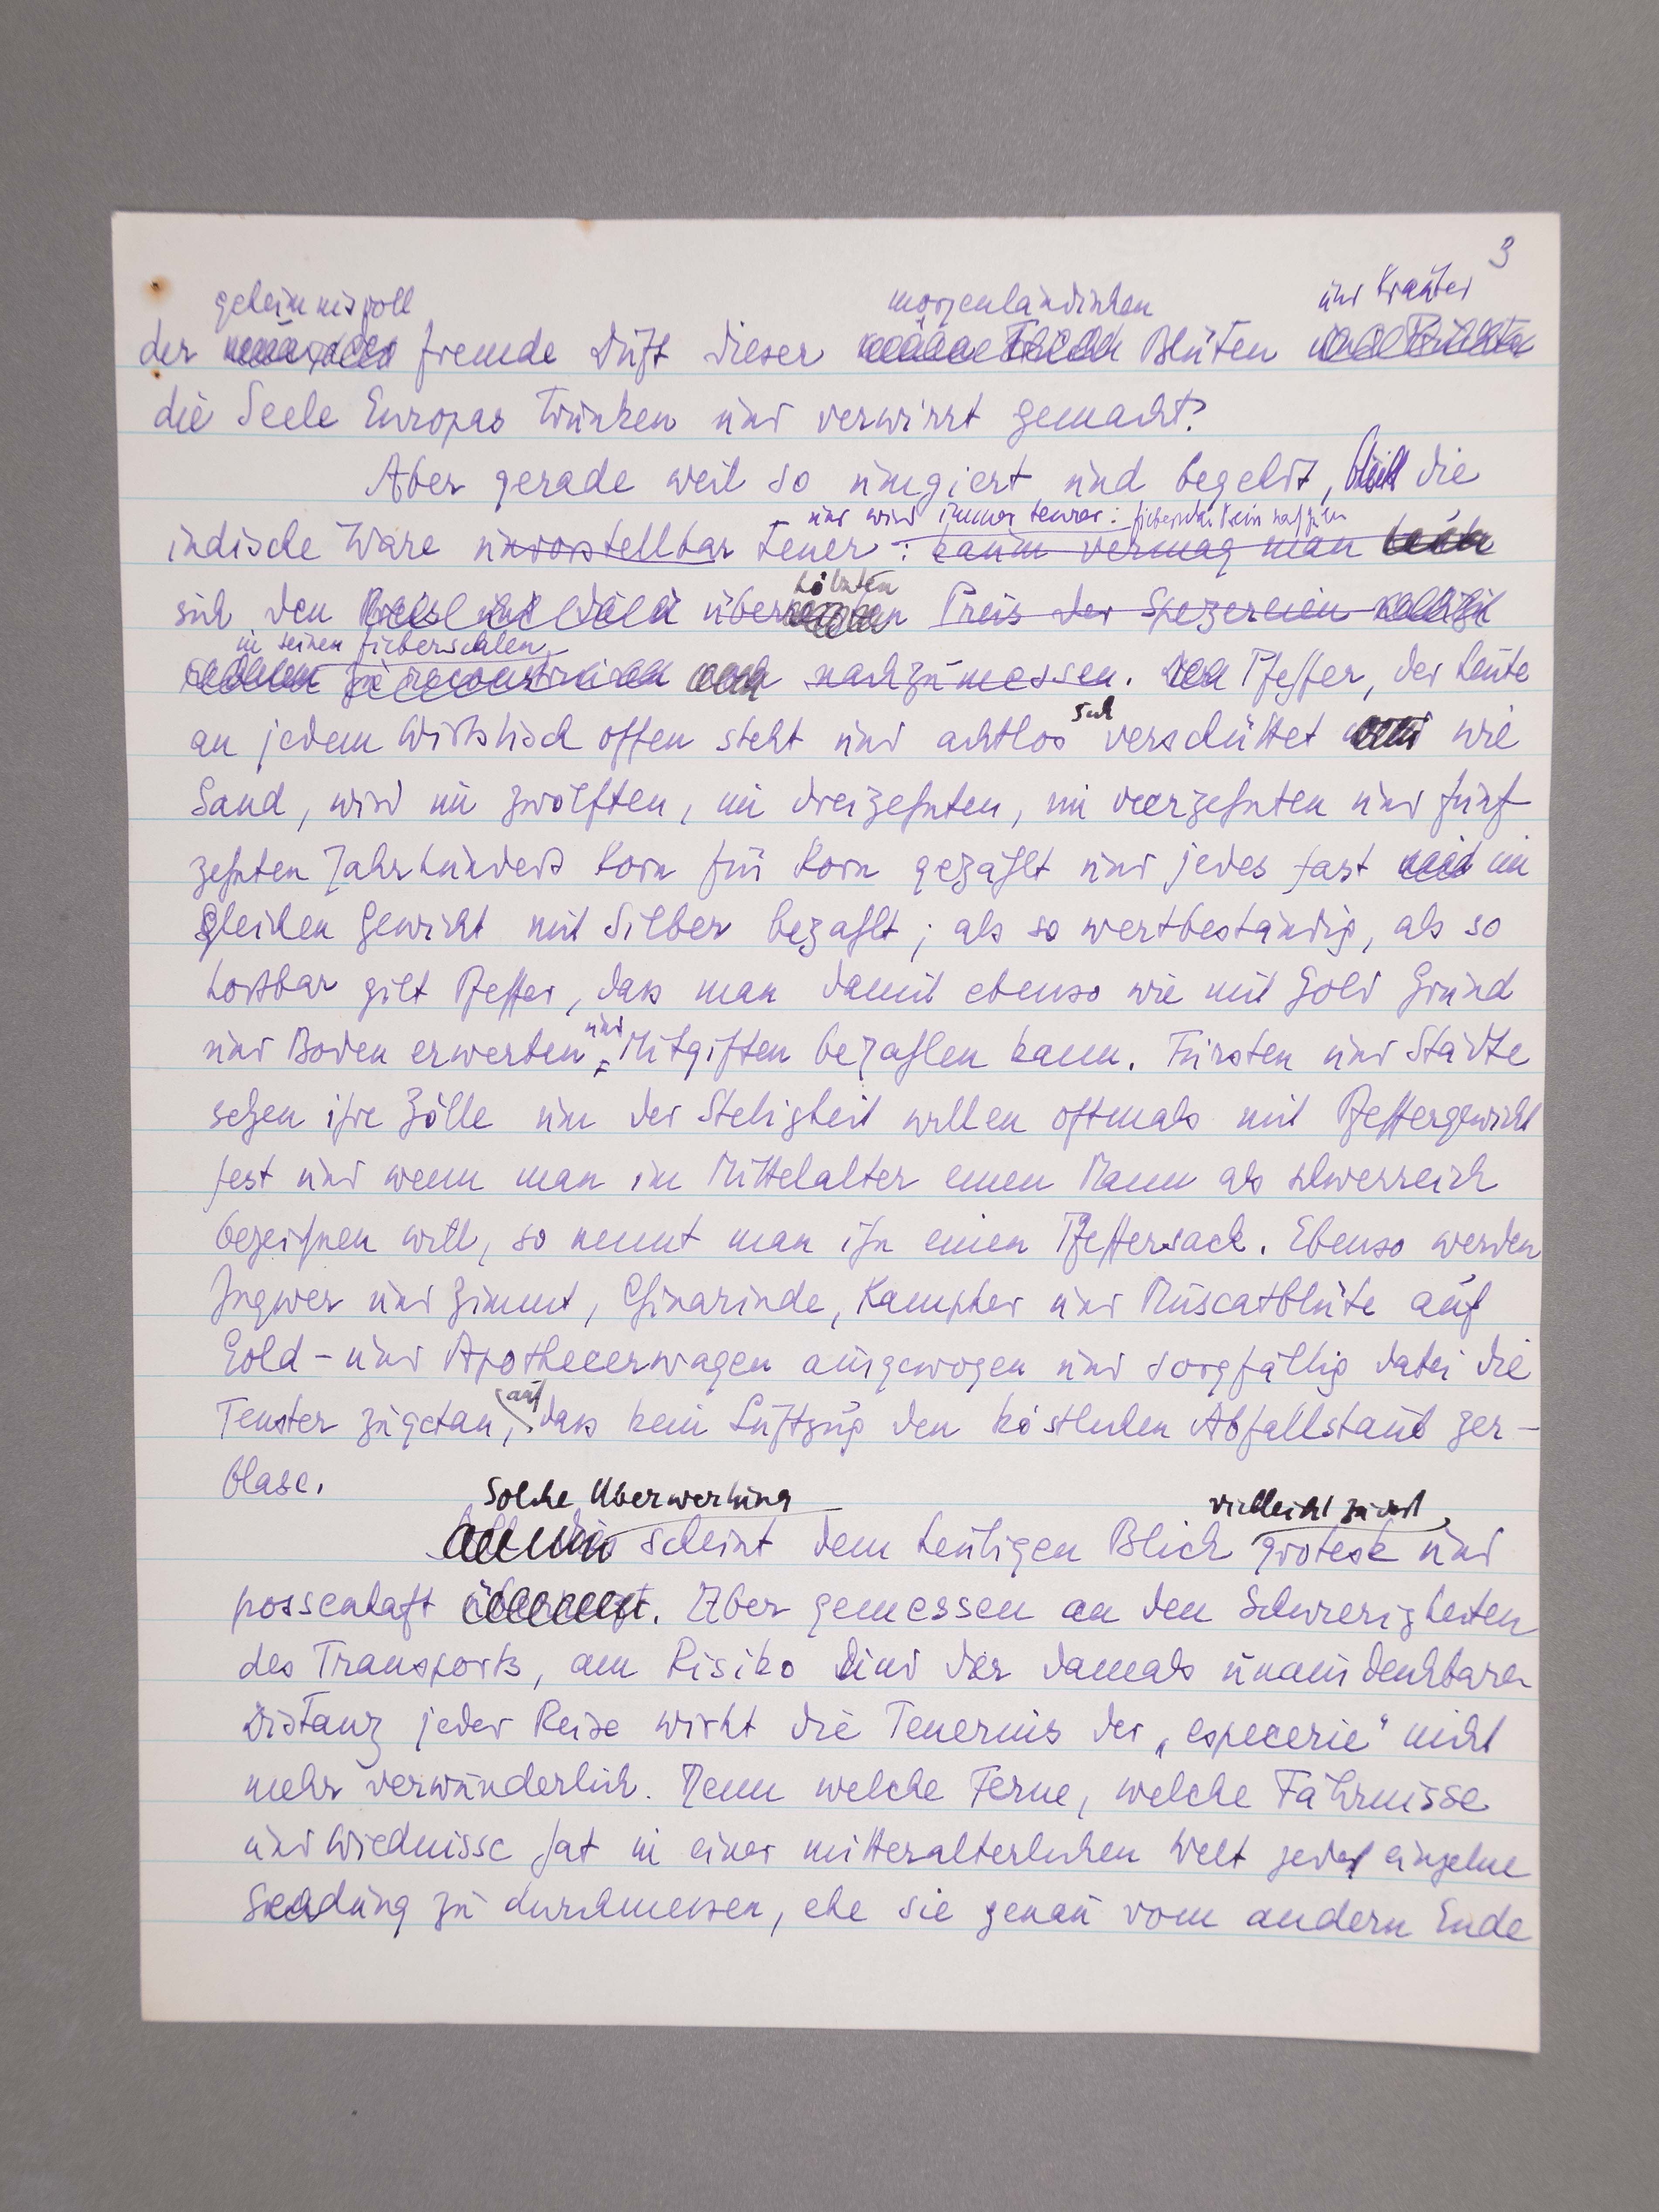 3
geheimnisvoll morgenländischen und Kräuter
der fremde Duft dieser Blüten
die Seele Europas trunken und verwirrt gemacht?
Aber gerade weil so ungiert und begehrt, bleibt die
und wird immer teurer:
indische Ware unvorstellbar teuer: kaum vermag man
höhnten
sich den über Preis der Spezereien
in seinen Fieberschalen
zu nachzumessen. Pfeffer, der heute
an jedem Wirtstisch offen steht und achtlos sich verschüttet wie
Sand, wird im zwölften, im dreizehnten, im vierzehnten und fünf-
zehnten Jahrhundert Korn für Korn gezählt und jedes fast im
gleichen Gewicht mit Silber bezahlt; als so wertbeständig, als so
kostbar gilt Pfeffer, dass man damit ebenso wie mit Gold Grund
und Boden erwerben und Mitgiften bezahlen kann. Fürsten und Städte
setzen ihre Zölle um der Stetigkeit willen oftmals mit Pfeffergewicht
fest und wenn man im Mittelalter einen Mann als schwerreich
bezeichnen will, so nennt man ihn einen Pfeffersack. Ebenso werden
Ingwer und Zimmt, Chinarinde, Kampher und Muscatblüte auf
Gold- und Apothecerwagen ausgewogen und sorgfältig dabei die
Fenster zugetan, auf dass kein Luftzug den köstlichen Abfallstaub zer-
blase.
Solche Überwertung vielleicht zuerst
scheint dem heutigen Blick grotesk und
possenhaft. Aber gemessen an den Schwierigkeiten
des Transports, am Risiko und der damals unausdenkbaren
Distanz jeder Reise wirkt die Teuernis der „especerie" nicht
mehr verwunderlich. Denn welche Ferne, welche Fährnisse
und Wiednisse hat in einer mittelalterlichen Welt jede einzelne
Sendung zu durchmessen, ehe sie genau vom andern Ende